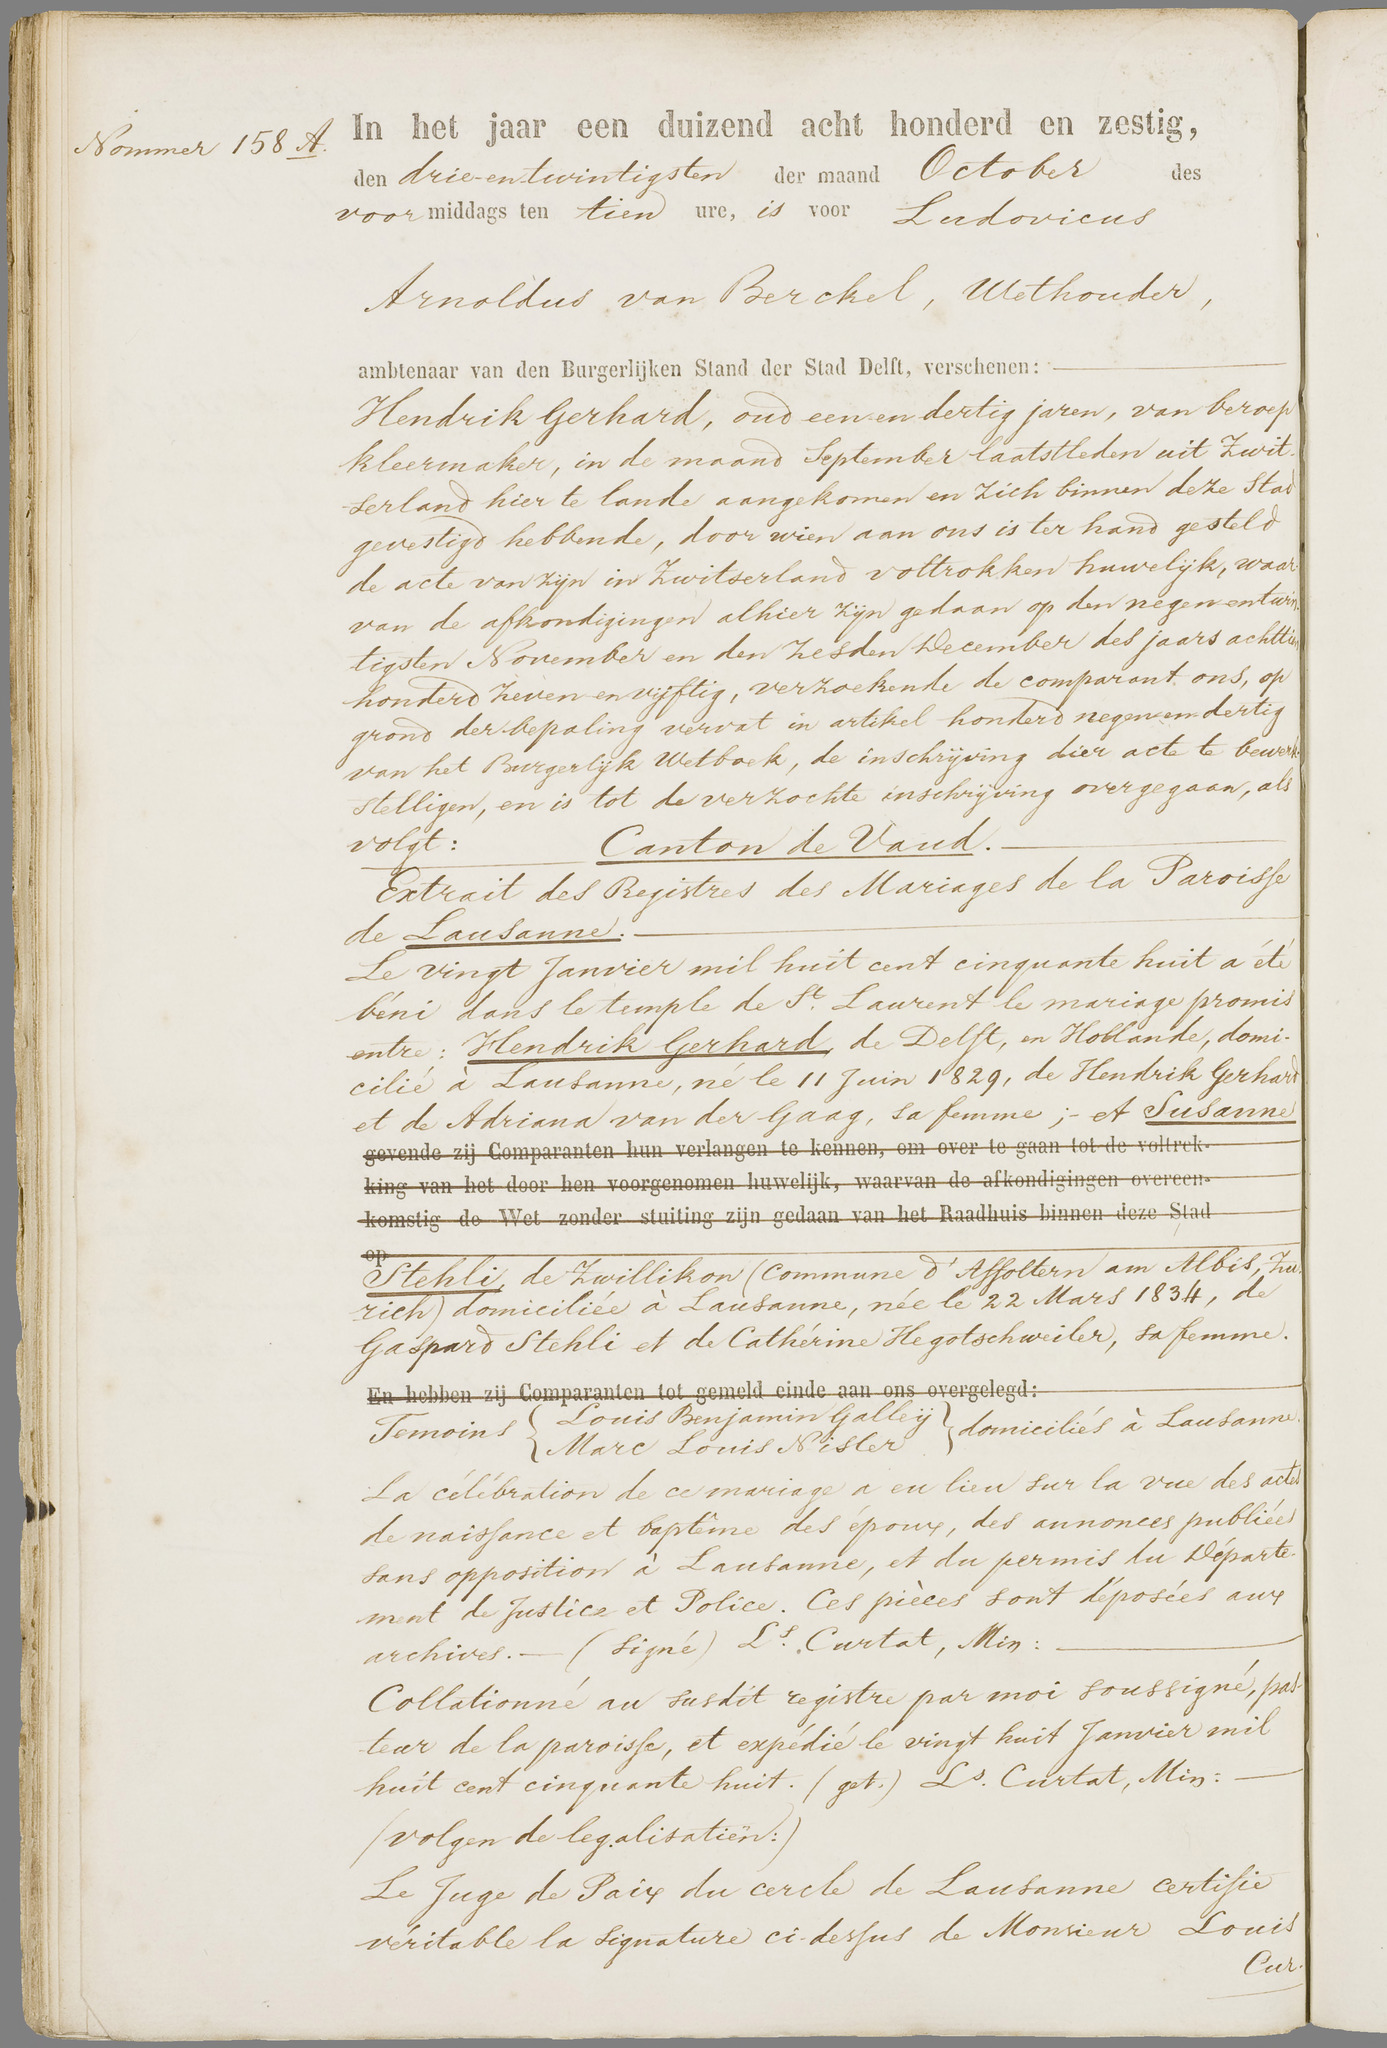 Nommer 158 A.
In het jaar een duizend acht honderd en zestig,
den drie-entwintigsten der maand October des
voor middags ten tien ure, is voor Ludovicus
Arnoldus van Berckel, Wethouder,
ambtenaar van den Burgerlijken Stand der Stad Delft, verschenen:
Hendrik Gerhard, oud een en dertig jaren, van beroep
kleermaker, in de maand September laatstleden uit Zwit-
serland hier te lande aangekomen en zich binnen deze Stad
gevestigd hebbende, door wien aan ons is ter hand gesteld
de acte van zijn in Zwitserland voltrokken huwelijk, waar-
van de afkondigingen alhier zijn gedaan op den negen entwin-
tigsten November en den zesden December des jaars achttien
honderd zeven en vijftig, verzoekende de comparant ons, op
grond der bepaling vervat in artikel honderd negen en dertig
van het Burgerlijk Wetboek, de inschrijving dier acte te bewerk-
stelligen, en is tot de verzochte inschrijving overgegaan, als
volgt: Canton de Vaud.
Extrait des Registres des Mariages de la Paroisse
de Lausanne.
Le vingt Janvier mil huit cent cinquante huit a été
béni dans le temple de St. Laurent le mariage promis
entre: Hendrik Gerhard, de Delft, en Hollande, domi-
cilié à Lausanne, né le 11 Juin 1829, de Hendrik Gerhard
et de Adriana van der Gaag, sa femme ;- et Susanne
gevende zij Comparanten hun verlangen te kennen, om over te gaan tot de voltrek-
king van het door hen voorgenomen huwelijk, waarvan de afkondigingen overeen-
komstig de Wet zonder stuiting zijn gedaan van het Raadhuis binnen deze Stad
op
Stehli, de Zwillikon (Commune d'Affoltern am Albis, Zu-
rich) domiciliée à Lausanne, née le 22 Mars 1834, de
Gaspard Stehli et de Cathérine Hegotschweiler, sa femme.
En hebben zij Comparanten tot gemeld einde aan ons overgelegd:
Temoins { Louis Benjamin Galleij
Marc Louis Nisler } domiciliés à Lausanne.
La célébration de ce mariage a eu lieu sur la vue des actes
de naissance et baptême des époux, des annonces publiées
sans opposition à Lausanne, et du permis du Départe-
ment de Justice et Police. Ces pièces sont déposées aux
archives. — (signé) Ls. Curtat, Min:
Collationné au susdit registre par moi soussigné, pas-
teur de la paroisse, et expédié le vingt huit Janvier mil
huit cent cinquante huit. (get.) Ls. Curtat, Min: —
(volgen de legalisatiën:)
Le Juge de Paix du cercle de Lausanne certifie
véritable la signature ci-dessus de Monsieur Louis
Cur-